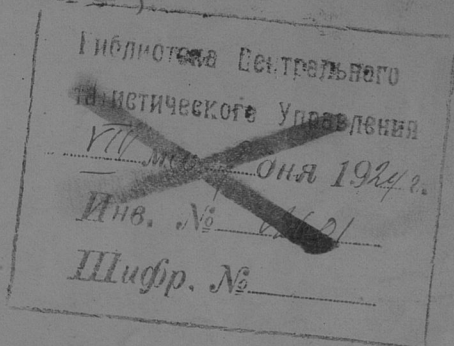 Библиотека Центрального
Статистического Управления
VIII дня 1924 г.
Инв. №
Шифр. №